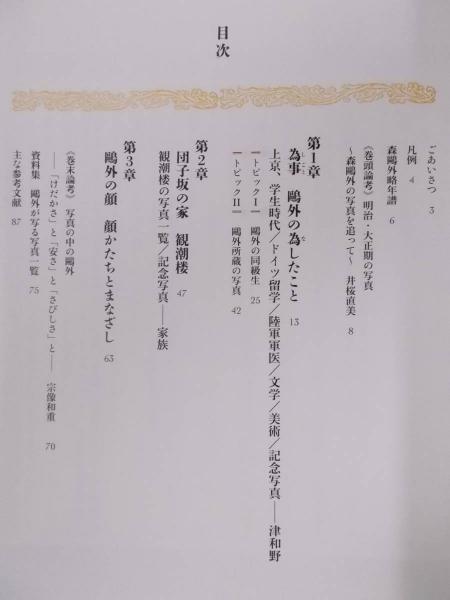 目次
ごあいさつ 3
凡例 4
森鷗外略年譜 6
《巻頭論考》明治・大正期の写真
～森鷗外の写真を追って～ 井桜直美 8
第1章
為事 鷗外の為したこと 13
上京、学生時代／ドイツ留学／陸軍軍医／文学／美術／記念写真――津和野
【トピックⅠ】 鷗外の同級生 25
【トピックⅡ】 鷗外所蔵の写真 42
第2章
団子坂の家 観潮楼 47
観潮楼の写真一覧／記念写真――家族
第3章
鷗外の顔 顔かたちとまなざし 63
《巻末論考》 写真の中の鷗外
――「けだかさ」と「安さ」と「さびしさ」と―― 宗像和重 70
資料集 鷗外が写る写真一覧 75
主な参考文献 87